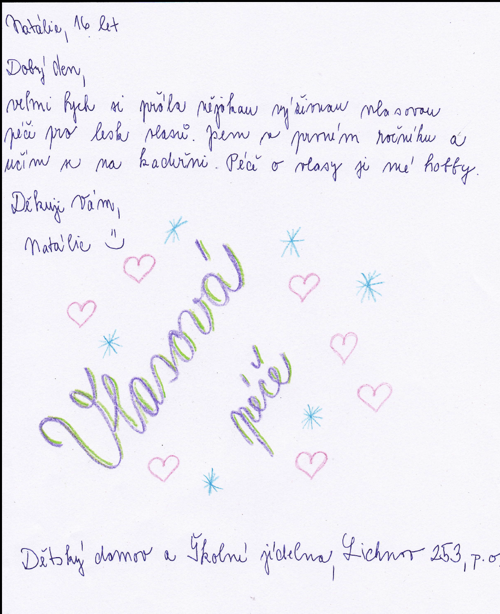 Natálie, 16 let
Dobrý den,
velmi bych si přála nějakou výživnou vlasovou
péči pro lesk vlasů. Jsem v prvním ročníku a
učím se na kadeřnici. Péče o vlasy je mé hobby.
Děkuji Vám,
Natálie
Vlasová
péče
Dětský domov a Školní jídelna, Lichnov 253, p.o.